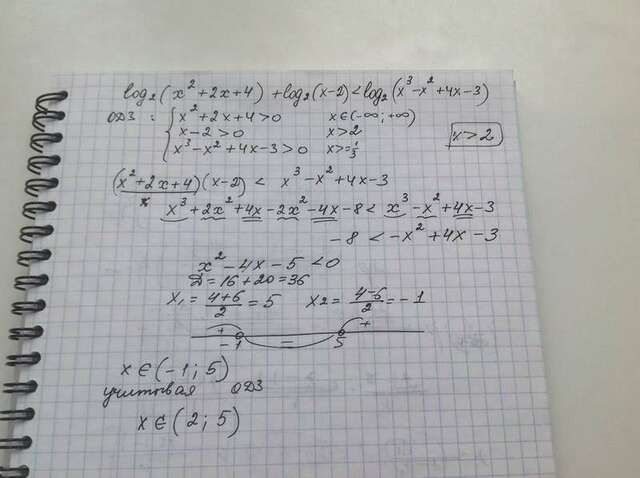 log₂(x²+2x+4)+log₂(x-2)<log₂(x³-x²+4x-3)
ОДЗ: { x²+2x+4>0 x∈(-∞;+∞)
x-2>0 x>2 x>2
x³-x²+4x-3>0
(x²+2x+4)(x-2) < x³-x²+4x-3
x³+2x²+4x-2x²-4x-8<x³-x²+4x-3
-8<-x²+4x-3
x²-4x-5<0
D=16+20=36
x₁=(4+6)/2=5 x2=(4-6)/2=-1
+ - +
-1 5
x∈(-1;5)
учитывая ОДЗ
x∈(2;5)